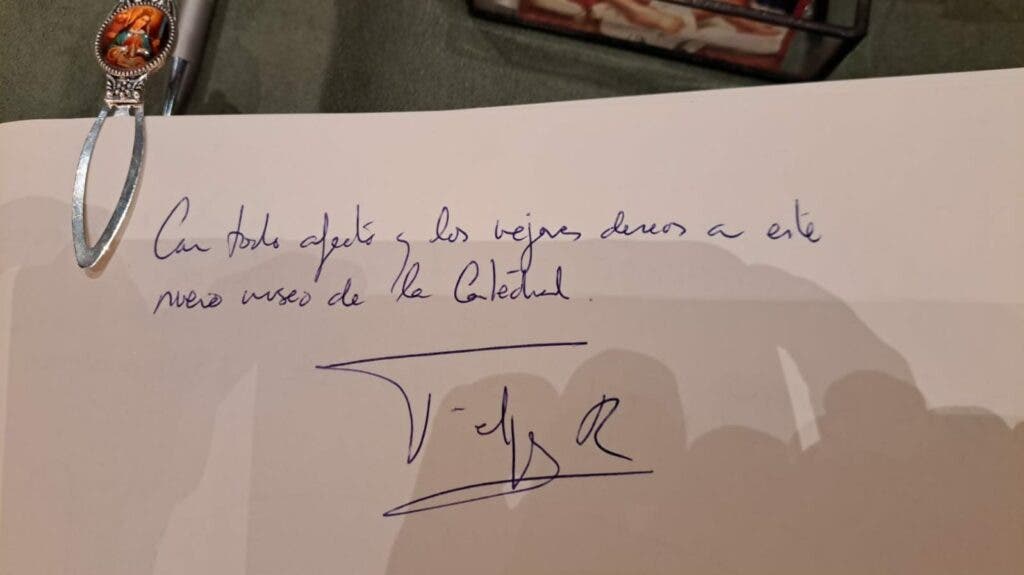 Con todo afecto y los mejores deseos a este
nuevo museo de la Catedral.
Felipe R